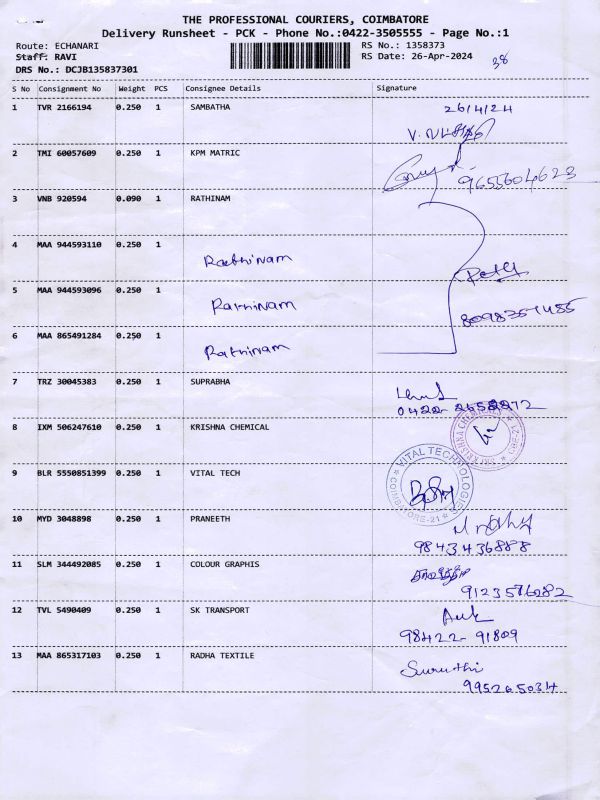 THE PROFESSIONAL COURIERS, COIMBATORE
Delivery Runsheet - PCK - Phone No.:0422-3505555 - Page No.:1
Route: ECHANARI
RS No.: 1358373
Staff: RAVI
RS Date: 26-Apr-2024
38
DRS No.: DCJB135837301
S No Consignment No Weight PCS Consignee Details Signature
1 TVR 2166194 0.250 1 SAMBATHA 26/4/24
2 TMI 60057609 0.250 1 KPM MATRIC
9655604623
3 VNB 920594 0.090 1 RATHINAM
4 MAA 944593110 0.250 1
Rathinam
5 MAA 944593096 0.250 1
Rathinam
8098357455
6 MAA 865491284 0.250 1
Rathinam
7 TRZ 30045383 0.250 1 SUPRABHA
8 IXM 506247610 0.250 1 KRISHNA CHEMICAL
9 BLR 5550851399 0.250 1 VITAL TECH
VITAL TECHNOLOGIES
COIMBATORE-21
10 MYD 3048898 0.250 1 PRANEETH
9843436888
11 SLM 344492085 0.250 1 COLOUR GRAPHIS
9123576082
12 TVL 5490409 0.250 1 SK TRANSPORT
98422-91809
13 MAA 865317103 0.250 1 RADHA TEXTILE
Suruthi
995265034